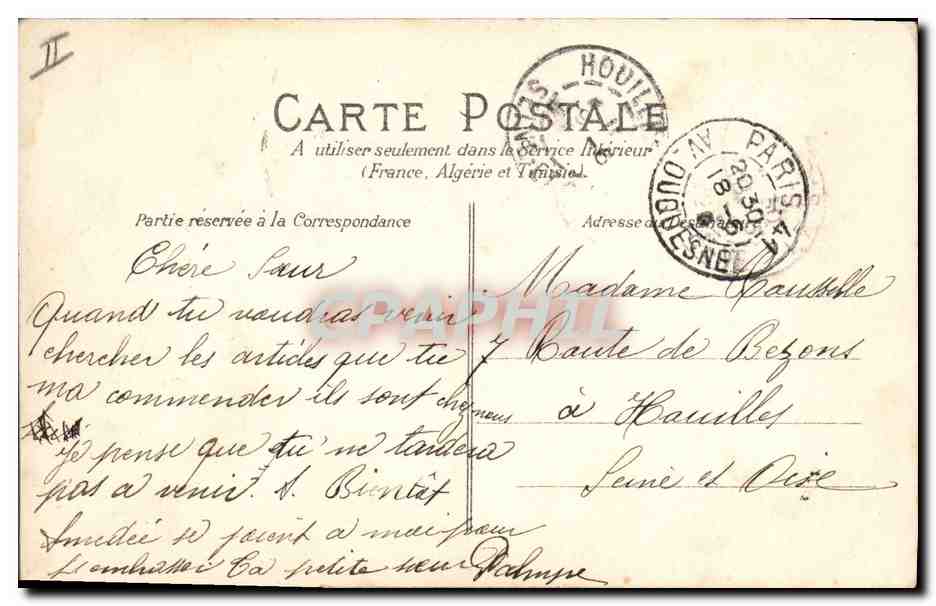 II
CARTE POSTALE
A utiliser seulement dans le Service Intérieur
(France, Algérie et Tunisie).
Partie réservée à la Correspondance
Adresse du Destinataire
HOUILLES
PARIS 41
20 30
18
AV. DUQUESNE
CPAPHIL
Chére Sœur
Quand tu voudras venir
chercher les articles que tu
ma commender ils sont chez nous
Je pense que tu ne tardera
pas a venir. A. Bientôt
Amedée se joient a moi pour
t'embrasser Ta petite sœur
Madame Rousselle
7 Route de Bezons
à Houilles
Seine et Oise